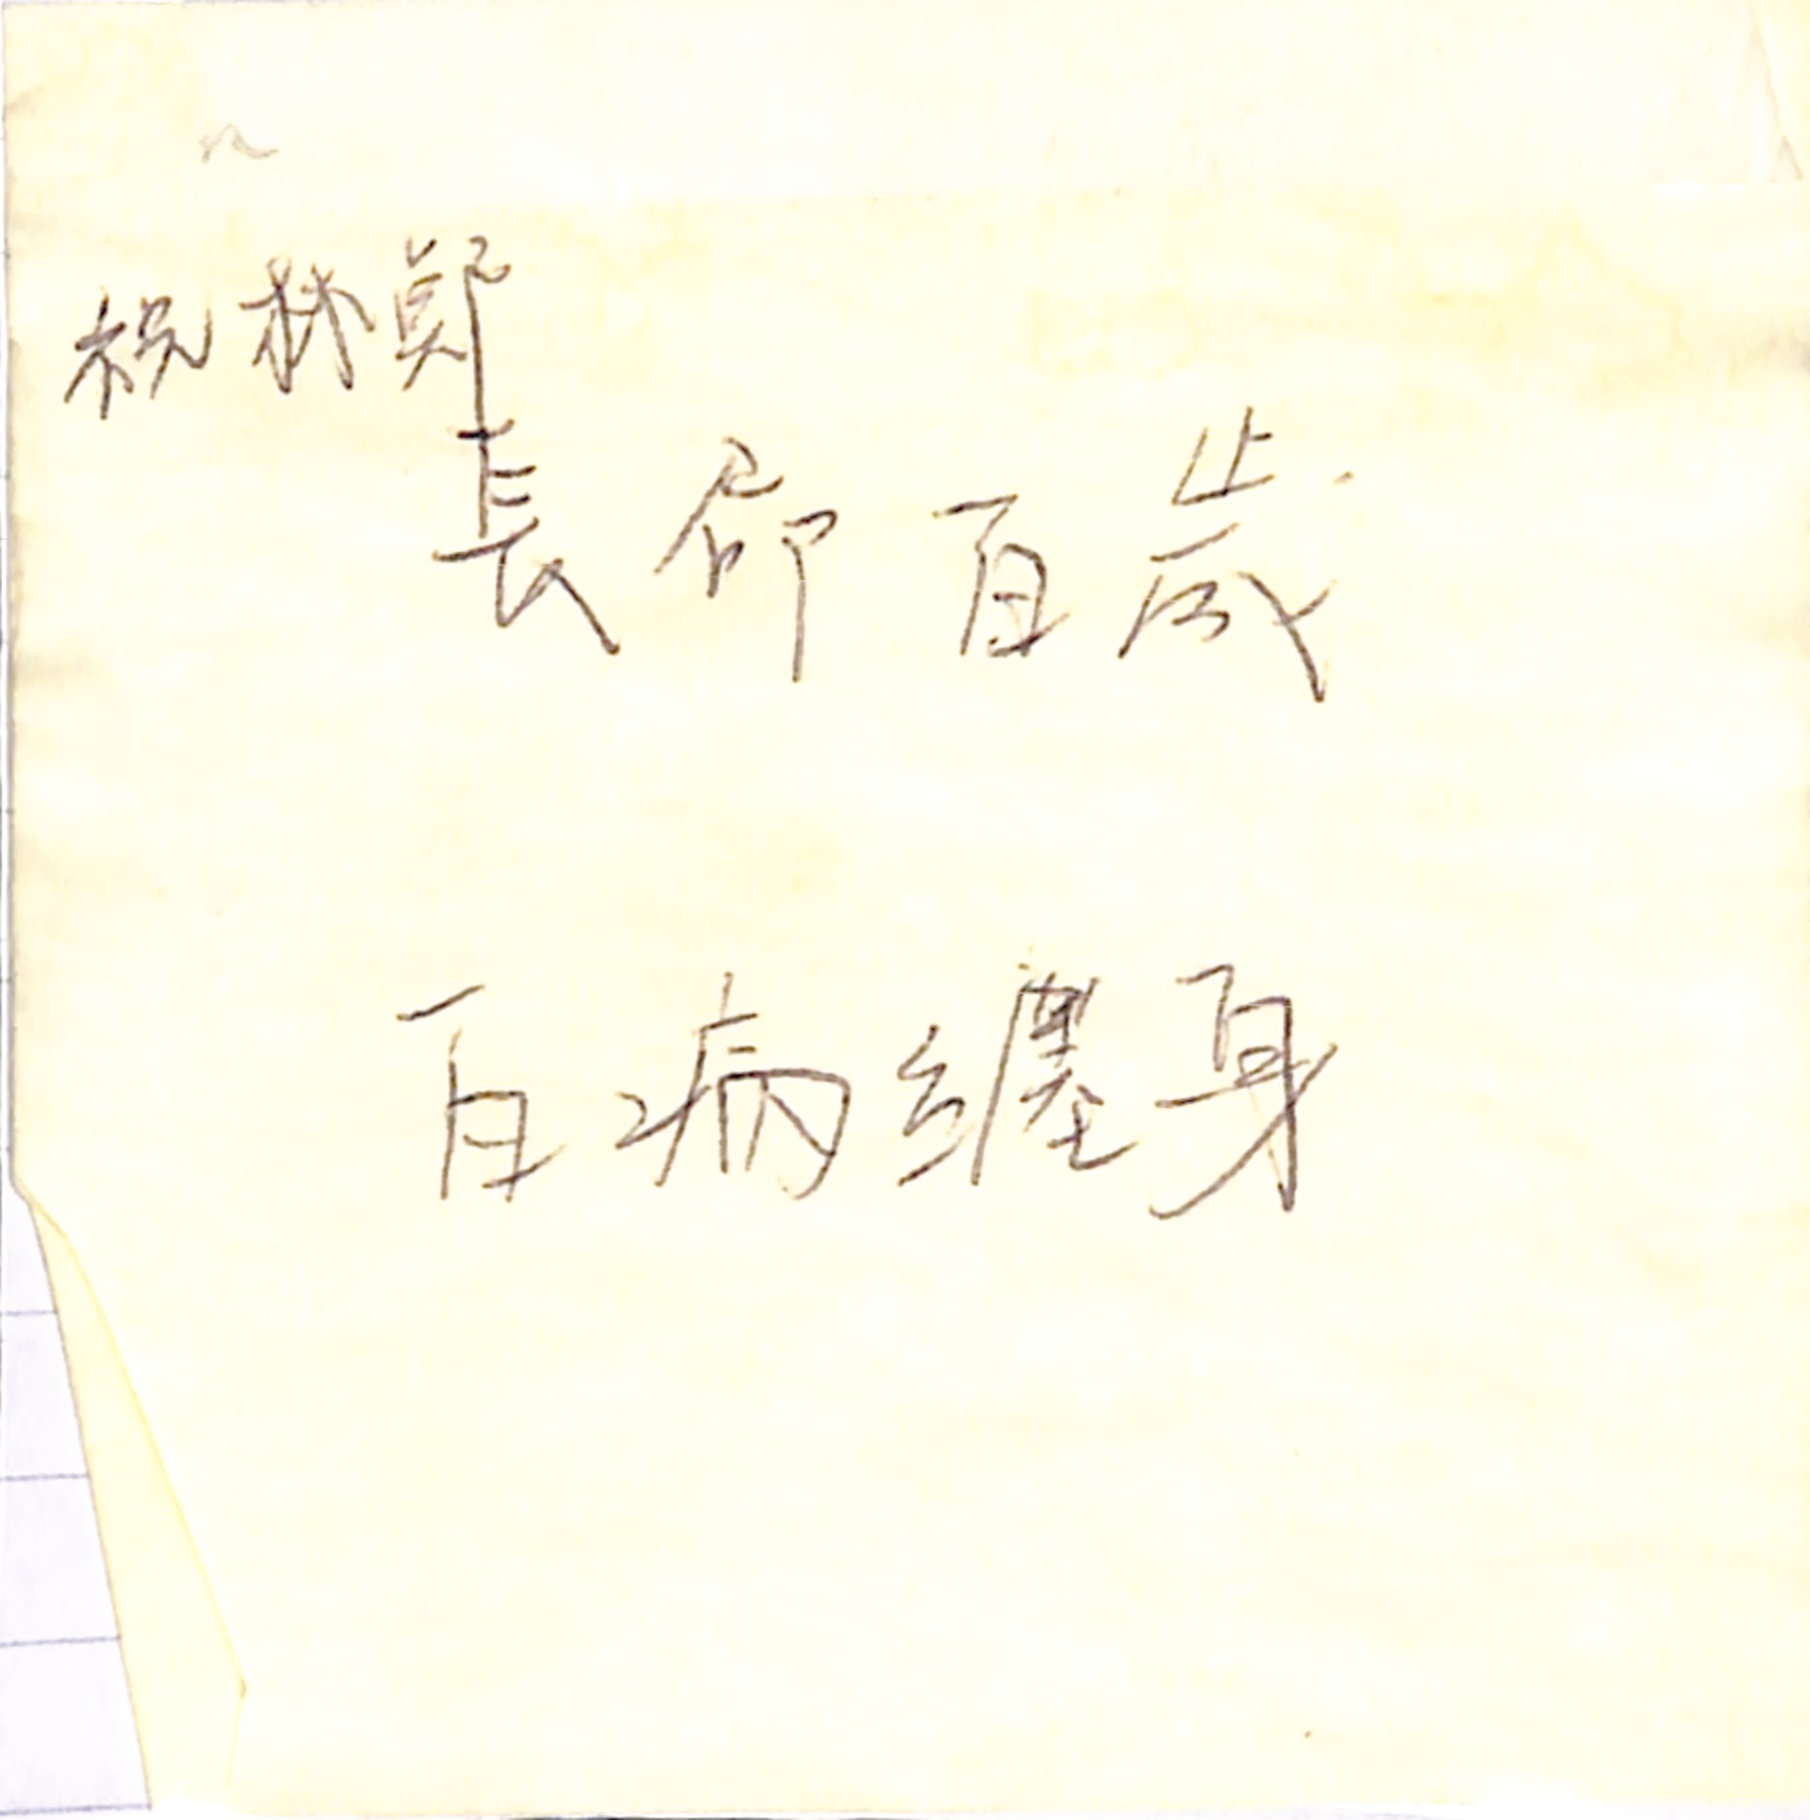 祝林鄭
長命百歲
百病纏身